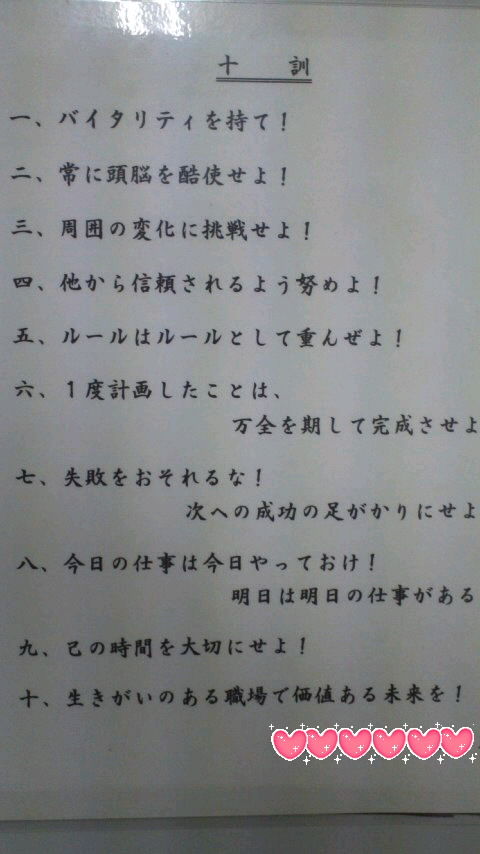 十 訓
一、バイタリティを持て！
二、常に頭脳を酷使せよ！
三、周囲の変化に挑戦せよ！
四、他から信頼されるよう努めよ！
五、ルールはルールとして重んぜよ！
六、１度計画したことは、
万全を期して完成させよ
七、失敗をおそれるな！
次への成功の足がかりにせよ
八、今日の仕事は今日やっておけ！
明日は明日の仕事がある
九、己の時間を大切にせよ！
十、生きがいのある職場で価値ある未来を！